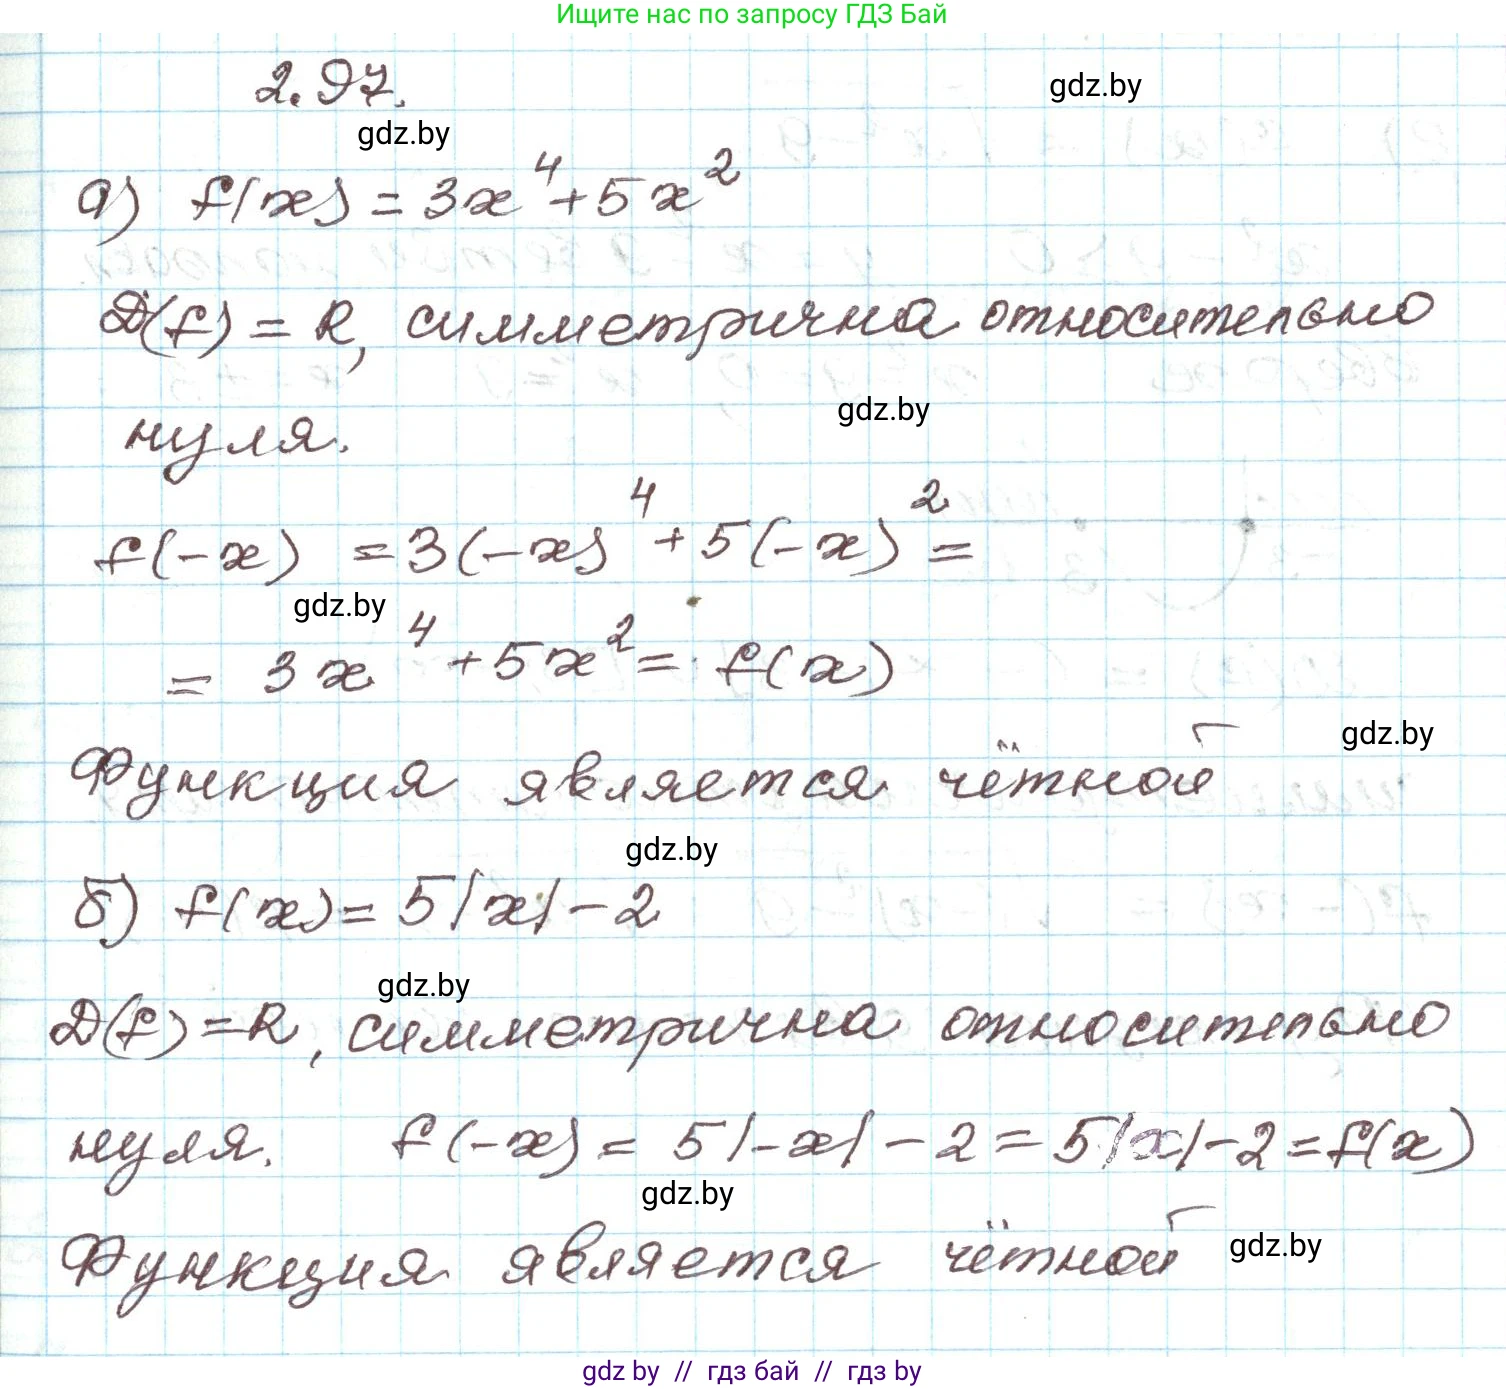 Ищите нас по запросу ГДЗ Бай
2.97.
gdz.by
gdz.by
а) f(x) = 3x⁴ + 5x²
D(f) = R, симметрична относительно
gdz.by
нуля.
f(-x) = 3(-x)⁴ + 5(-x)² =
gdz.by
= 3x⁴ + 5x² = f(x)
gdz.by
Функция является чётной
gdz.by
б) f(x) = 5|x| - 2
gdz.by
D(f) = R, симметрична относительно
нуля. f(-x) = 5|-x| - 2 = 5|x| - 2 = f(x)
gdz.by
Функция является чётной
gdz.by
gdz.by // гдз бай // гдз by